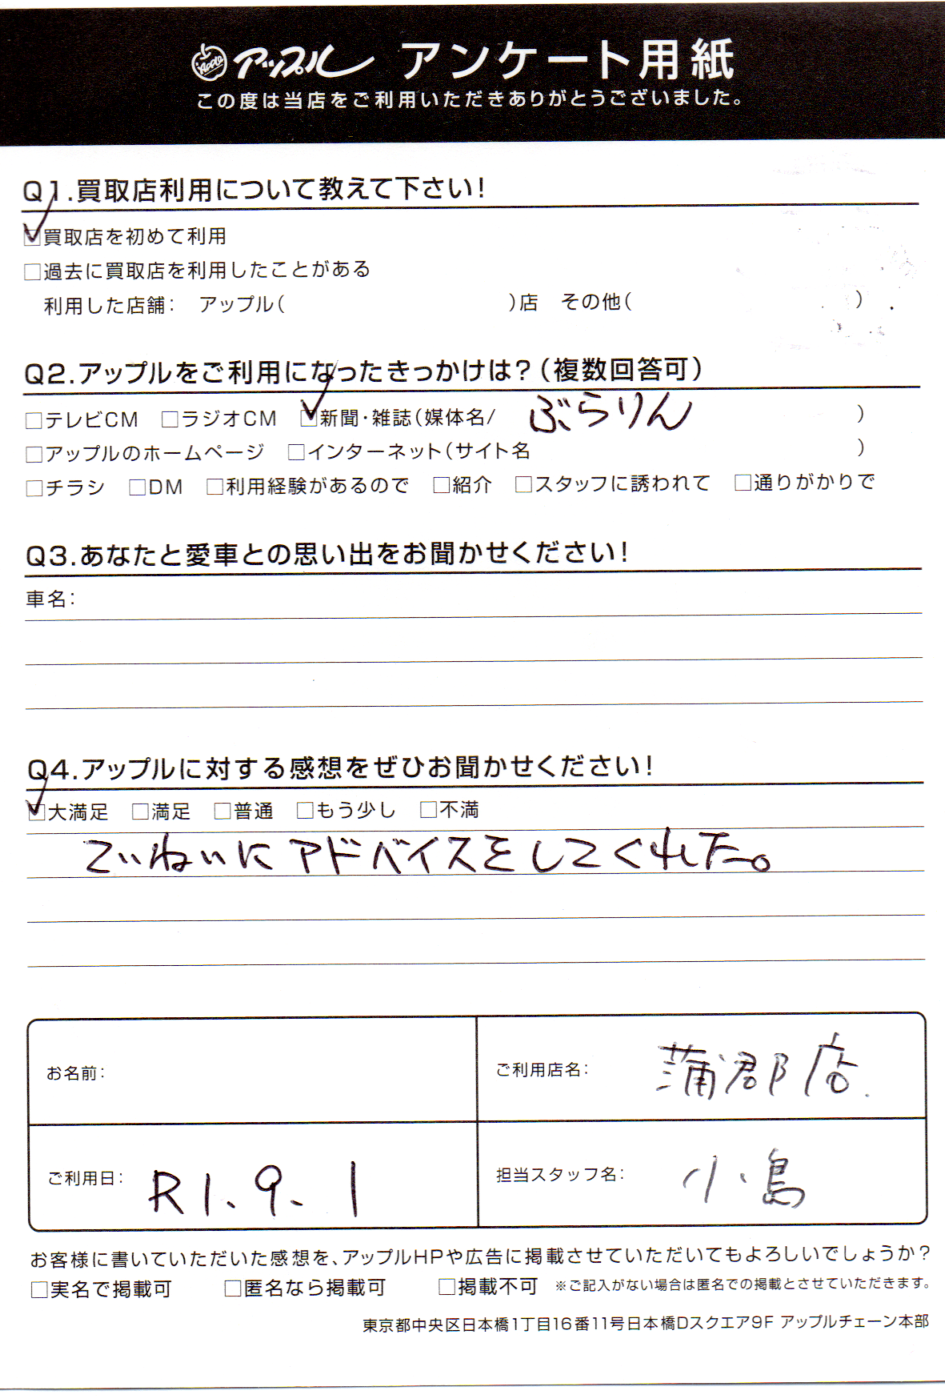 Apple アップル アンケート用紙
この度は当店をご利用いただきありがとうございました。
Q1.買取店利用について教えて下さい!
☑買取店を初めて利用
□過去に買取店を利用したことがある
利用した店舗: アップル( )店 その他( )
Q2.アップルをご利用になったきっかけは?(複数回答可)
□テレビCM □ラジオCM ☑新聞・雑誌(媒体名/ ぶらりん )
□アップルのホームページ □インターネット(サイト名 )
□チラシ □DM □利用経験があるので □紹介 □スタッフに誘われて □通りがかりで
Q3.あなたと愛車との思い出をお聞かせください!
車名:
Q4.アップルに対する感想をぜひお聞かせください!
☑大満足 □満足 □普通 □もう少し □不満
ていねいにアドバイスをしてくれた。
お名前:
ご利用店名: 蒲郡店
ご利用日: R1.9.1
担当スタッフ名: 小島
お客様に書いていただいた感想を、アップルHPや広告に掲載させていただいてもよろしいでしょうか?
□実名で掲載可 □匿名なら掲載可 □掲載不可 ※ご記入がない場合は匿名での掲載とさせていただきます。
東京都中央区日本橋1丁目16番11号日本橋Dスクエア9F アップルチェーン本部